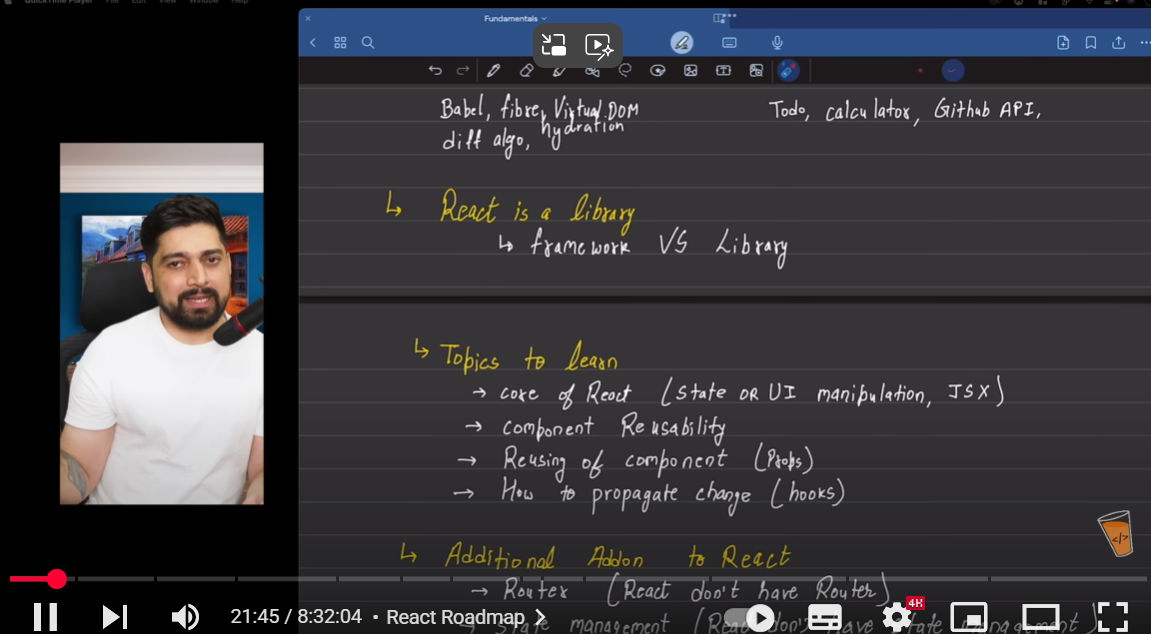 QuickTime Player File Edit View Window Help
Fundamentals
Babel, fibre, Virtual DOM
diff algo, hydration
Todo, calculator, Github API,
↳ React is a library
↳ framework VS Library
↳ Topics to learn
→ core of React (state OR UI manipulation, JSX)
→ component Reusability
→ Reusing of component (Props)
→ How to propagate change (hooks)
↳ Additional Addon to React
→ Router (React don't have Router)
→ State management (React don't have state management)
</>
21:45 / 8:32:04 • React Roadmap >
4K